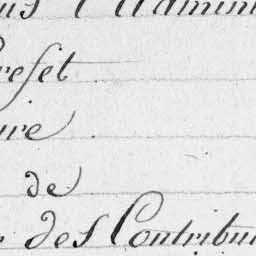 us l'Admini
refet
ure
de
des Contribu